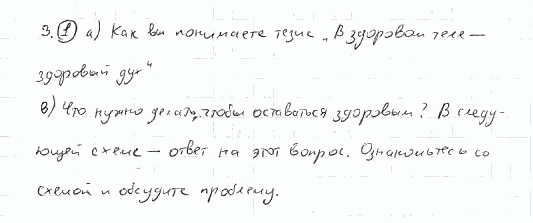 3. 1 а) Как вы понимаете тезис „В здоровом теле —
здоровый дух“
в) Что нужно делать, чтобы оставаться здоровым? В следу-
ющей схеме — ответ на этот вопрос. Ознакомьтесь со
схемой и обсудите проблему.